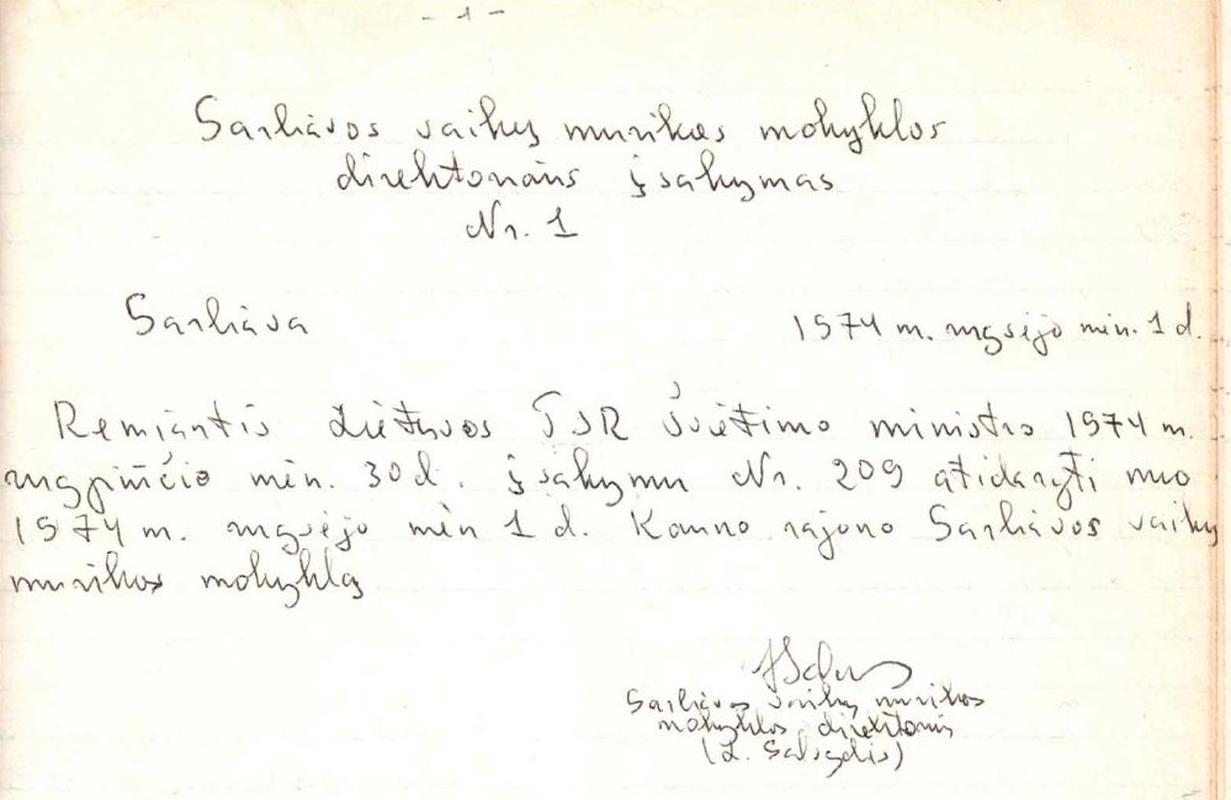 - 1 -
Garliavos vaikų muzikos mokyklos
direktoriaus įsakymas
Nr. 1
Garliava 1974 m. rugsėjo mėn. 1 d.
Remiantis Lietuvos TSR Švietimo ministro 1974 m.
rugpiūčio mėn. 30 d. įsakymu Nr. 209 atidaryti nuo
1974 m. rugsėjo mėn 1 d. Kauno rajono Garliavos vaikų
muzikos mokyklą
Garliavos vaikų muzikos
mokyklos direktorius